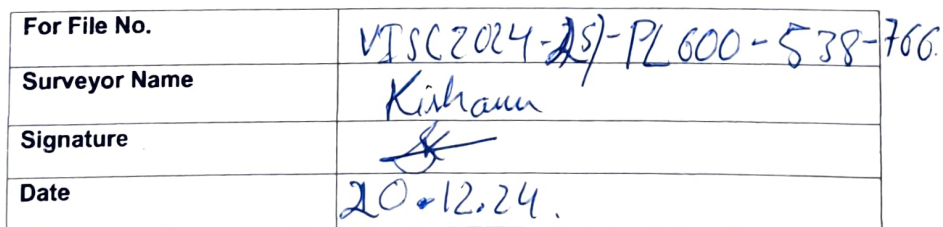 For File No. VISC2024-25)-PL600-538-766.
Surveyor Name
Signature
Date 20.12.24.